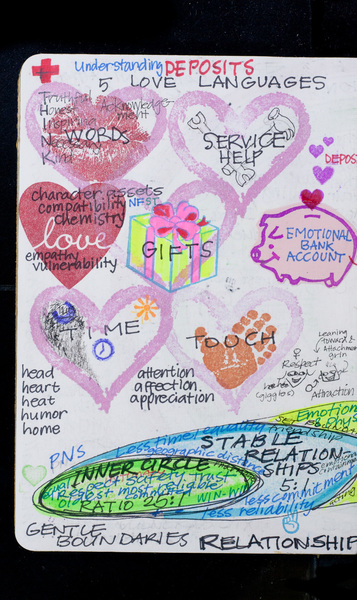 Understanding DEPOSITS
5 LOVE LANGUAGES
Truthful
Honest
Inspiring
Necessary
Kind
Acknowledge-
ment
WORDS
SERVICE
HELP
DEPOS
character assets
compatibility
chemistry
love
empathy
vulnerability
NFST
GIFTS
EMOTIONAL
BANK
ACCOUNT
TIME
TOUCH
Leaning
toward
Attachment
Respect
Attraction
head
heart
heat
humor
home
attention
affection
appreciation
PNS
Emotion
Less time, equality friendship
Less geographic distance
STABLE
RELATION
SHIPS
5:1
INNER CIRCLE
RATIO 25:1
WIN-WIN
less commitment
less reliability
GENTLE
BOUNDARIES
RELATIONSHIP